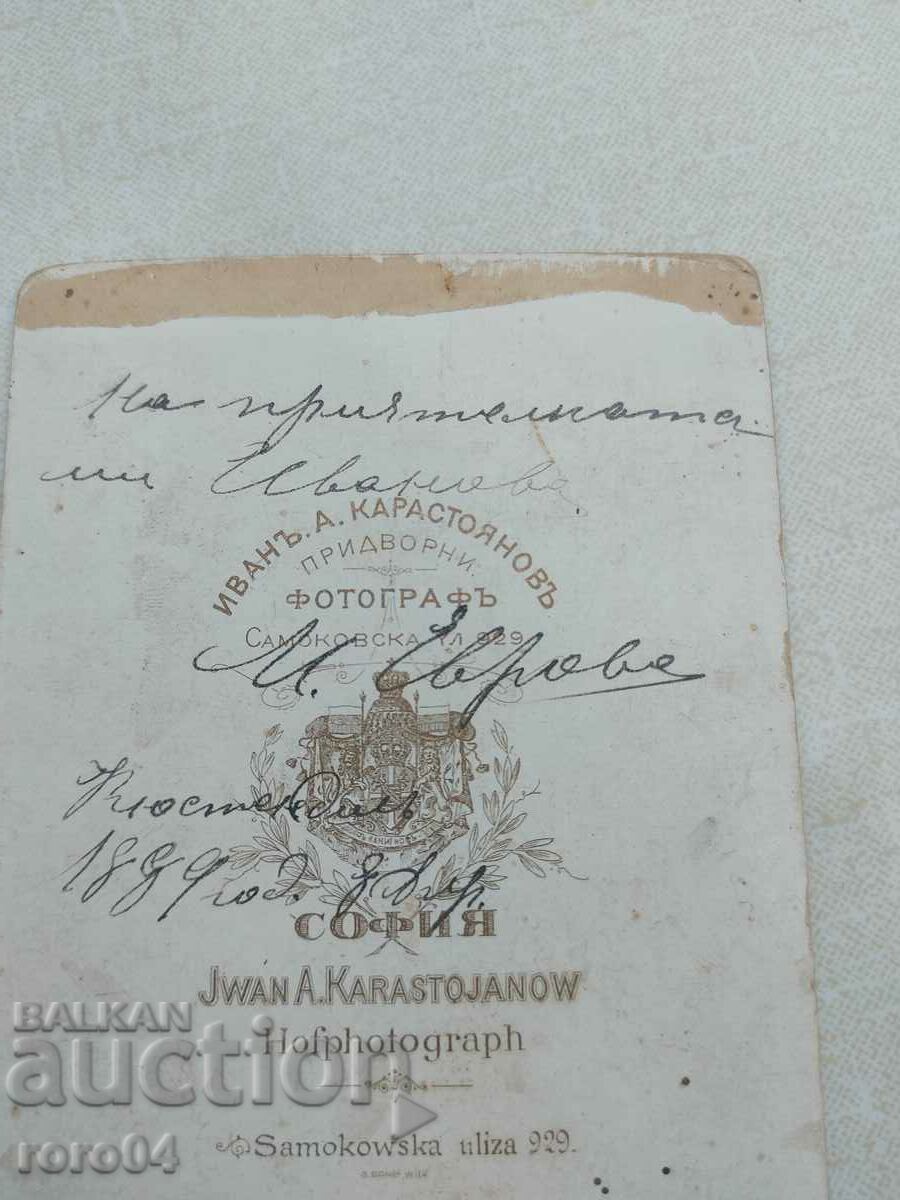 На приятелката
ми Иванова
ИВАНЪ. А. КАРАСТОЯНОВЪ
ПРИДВОРНИ
ФОТОГРАФЪ
САМОКОВСКА УЛ 929
М.
Кюстендилъ
год.
СОФИЯ
JWAN A. KARASTOJANOW
Hofphotograph
Samokowska uliza 929.
BALKAN
auction
roro04